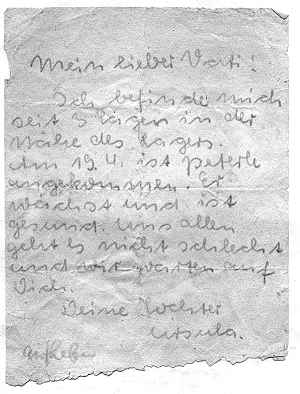 Mein lieber Vati!
Ich befinde mich
seit 3 Tagen in der
Nähe des Lagers.
Am 19.4. ist Peterle
angekommen. Er
wächst und ist
gesund. Uns allen
geht es nicht schlecht
und wir warten auf
Dich.
Deine Tochter
Ursula.